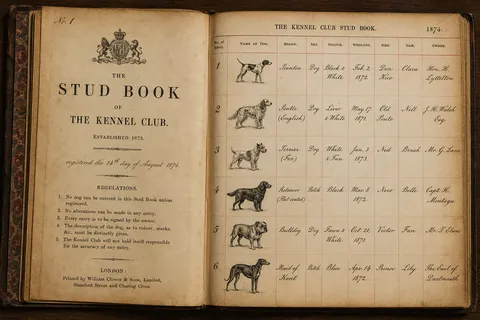 No. 1
THE
STUD BOOK
OF
THE KENNEL CLUB.
ESTABLISHED 1873.
registered the 14th day of August 1874
REGULATIONS.
1. No dog can be entered in this Stud Book unless
registered.
2. No alterations can be made in any entry.
3. Every entry is to be signed by the owner.
4. The description of the dog, as to colour, marks,
&c., must be distinctly given.
5. The Kennel Club will not hold itself responsible
for the accuracy of any entry.
LONDON:
Printed by William Clowes & Sons, Limited,
Stamford Street and Charing Cross.
THE KENNEL CLUB STUD BOOK. 1874.
NAME OF DOG. BREED. SEX. COLOUR. WHELPED. SIRE. DAM. OWNER.
1 Pointer Dog Black & White Feb. 2 1872 Don Clara Hon. H. Lyttelton
2 (English) Dog Liver & White May. 17 1871 Old Nell J. H. Walsh Esq.
3 Terrier (Fox) Dog White & Tan Jan. 3 1873 Mr. G.
4 Bitch Black 1872 Nero Belle Capt. H. Montagu
5 Bulldog Dog Fawn & White Oct. 21 1871 Victor Fan Mr. T.
6 Maid of Kent Bitch Blue Apr. 14 1872 Lily The Earl of Dartmouth